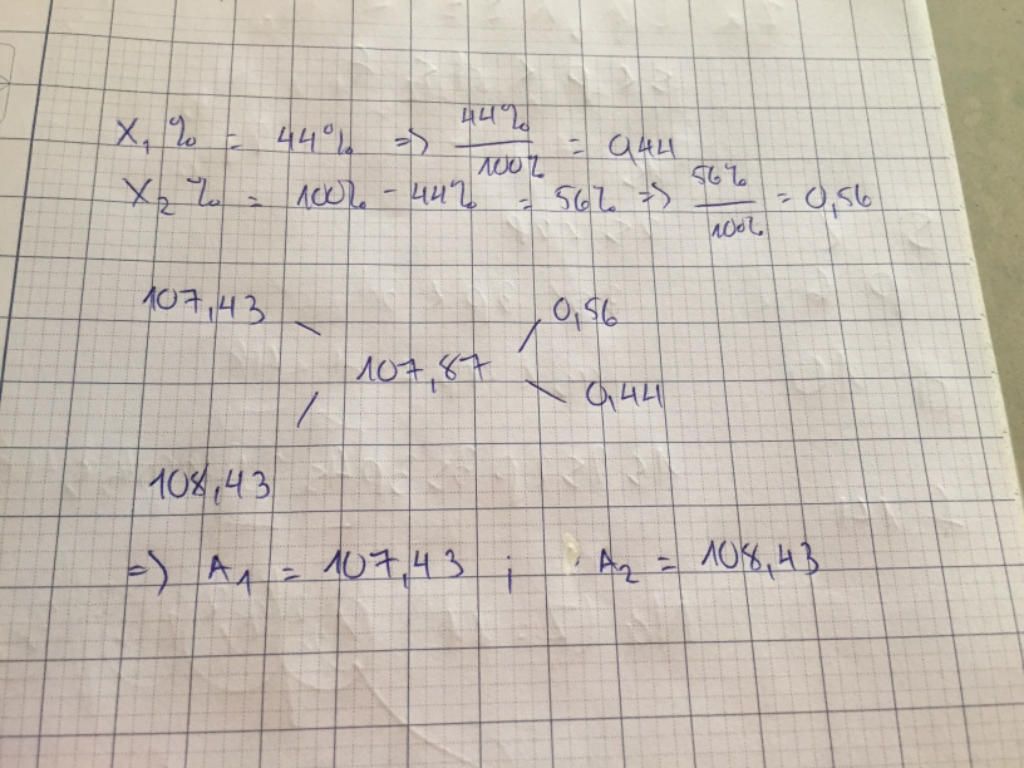 X₁ % = 44% => 44%/100% = 0,44
X₂ % = 100% - 44% = 56% => 56%/100% = 0,56
107,43 \ / 0,56
107,87
/ \ 0,44
108,43
=> A₁ = 107,43 ; A₂ = 108,43